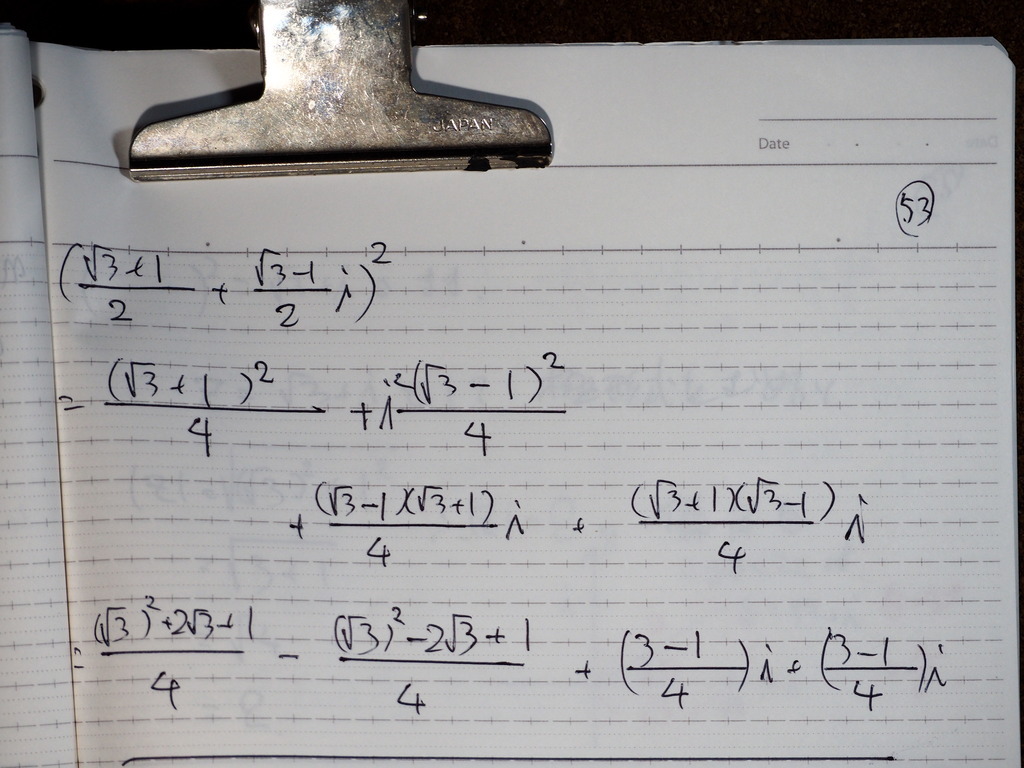 JAPAN
Date
53
(\frac{√3+1}{2} + \frac{√3-1}{2} i)^2
= \frac{(√3+1)^2}{4} + i^2 \frac{(√3-1)^2}{4}
+ \frac{(√3-1)(√3+1)}{4} i + \frac{(√3+1)(√3-1)}{4} i
= \frac{(√3)^2+2√3+1}{4} - \frac{(√3)^2-2√3+1}{4} + (\frac{3-1}{4}) i + (\frac{3-1}{4}) i